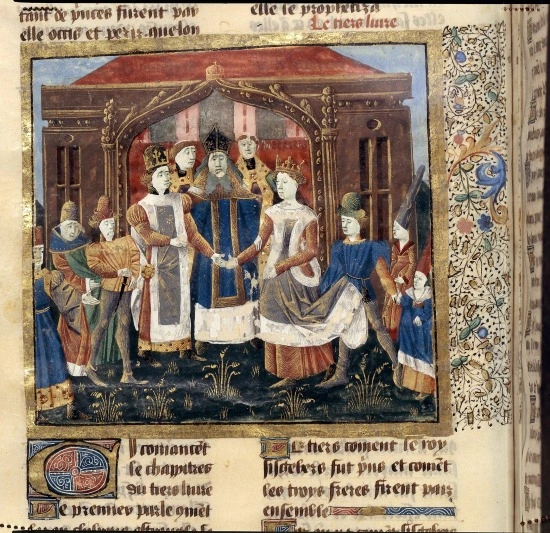 tant de pnces furent par
elle occis et periz quelon
elle le prophetiza
Le tiers liure
Cy comancet
le chapitres
du tiers liure
Le premier parle comet
Le tiers coment le roy
fut pns et comet
les troys freres firent paix
ensemble